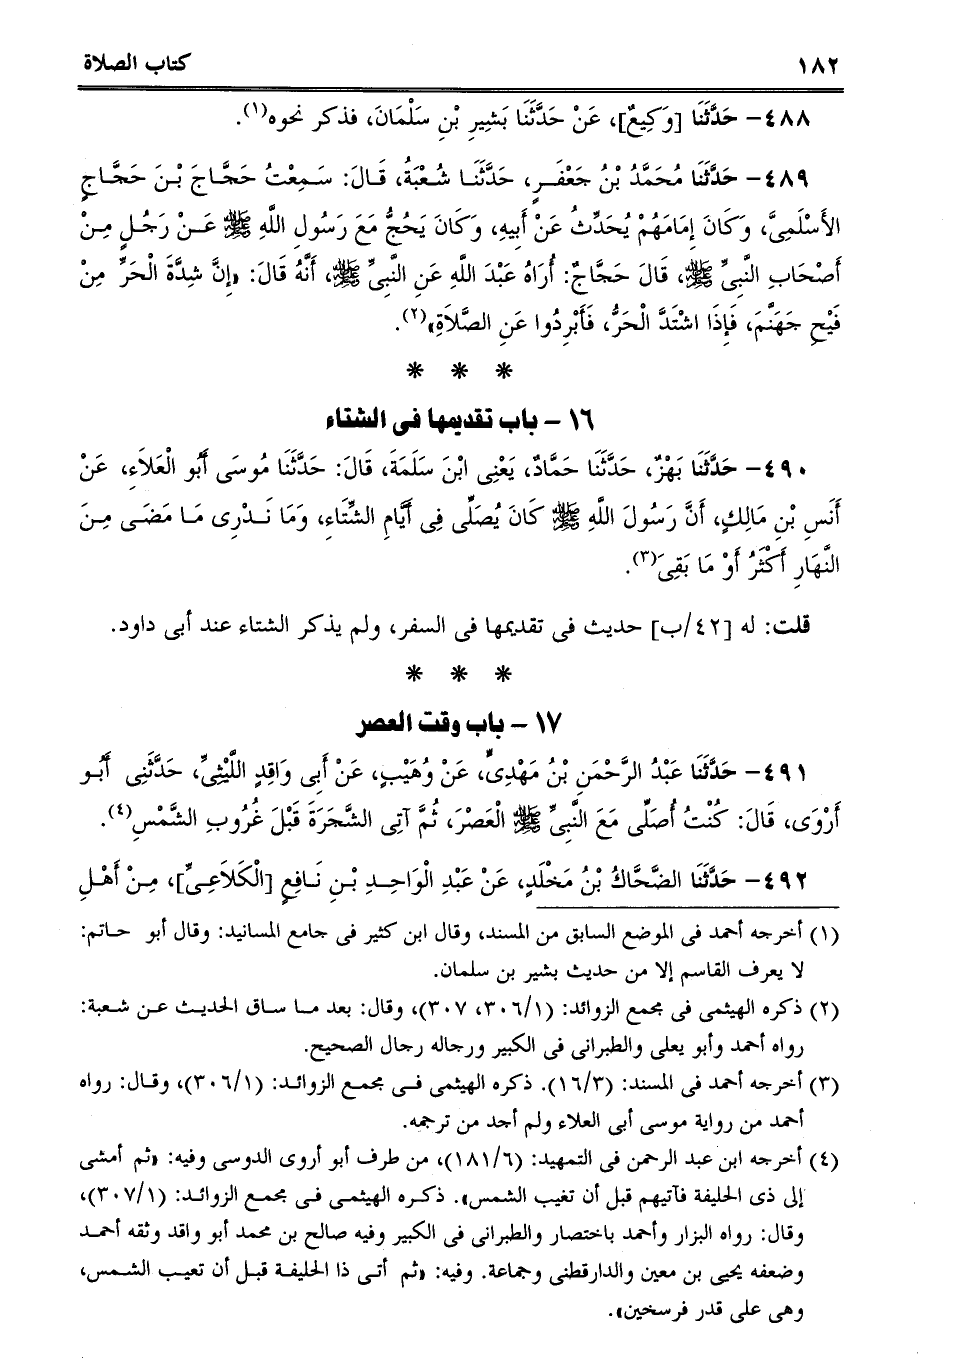 ١٨٢ كتاب الصلاة
٤٨٨ - حَدَّثَنَا [وَكِيعٌ]، عَنْ حَدَّثَنَا بَشِيرِ بْنِ سَلْمَانَ، فذكر نحوه(١).
٤٨٩ - حَدَّثَنَا مُحَمَّدُ بْنُ جَعْفَرٍ، حَدَّثَنَا شُعْبَةُ، قَالَ: سَمِعْتُ حَجَّاجَ بْنَ حَجَّاجٍ
الأَسْلَمِىَّ، وَكَانَ إِمَامَهُمْ يُحَدِّثُ عَنْ أَبِيهِ، وَكَانَ يَحُجُّ مَعَ رَسُولِ اللَّهِ ﷺ عَنْ رَجُلٍ مِنْ
أَصْحَابِ النَّبِىِّ ﷺ، قَالَ حَجَّاجٌ: أُرَاهُ عَبْدَ اللَّهِ عَنِ النَّبِىِّ ﷺ، أَنَّهُ قَالَ: «إِنَّ شِدَّةَ الْحَرِّ مِنْ
فَيْحِ جَهَنَّمَ، فَإِذَا اشْتَدَّ الْحَرُّ، فَأَبْرِدُوا عَنِ الصَّلاَةِ»(٢).
* * *
١٦ - باب تقديمها فى الشتاء
٤٩٠ - حَدَّثَنَا بَهْزٌ، حَدَّثَنَا حَمَّادٌ، يَعْنِى ابْنَ سَلَمَةَ، قَالَ: حَدَّثَنَا مُوسَى أَبُو الْعَلاَءِ، عَنْ
أَنَسِ بْنِ مَالِكٍ، أَنَّ رَسُولَ اللَّهِ ﷺ كَانَ يُصَلِّى فِى أَيَّامِ الشِّتَاءِ، وَمَا نَدْرِى مَا مَضَى مِنَ
النَّهَارِ أَكْثَرُ أَوْ مَا بَقِىَ(٣).
قلت: له [٤٢/ب] حديث فى تقديمها فى السفر، ولم يذكر الشتاء عند أبى داود.
* * *
١٧ - باب وقت العصر
٤٩١ - حَدَّثَنَا عَبْدُ الرَّحْمَنِ بْنُ مَهْدِىٍّ، عَنْ وُهَيْبٍ، عَنْ أَبِى وَاقِدٍ اللَّيْثِىِّ، حَدَّثَنِى أَبُو
أَرْوَى، قَالَ: كُنْتُ أُصَلِّى مَعَ النَّبِىِّ ﷺ الْعَصْرَ، ثُمَّ آتِى الشَّجَرَةَ قَبْلَ غُرُوبِ الشَّمْسِ(٤).
٤٩٢ - حَدَّثَنَا الضَّحَّاكُ بْنُ مَخْلَدٍ، عَنْ عَبْدِ الْوَاحِدِ بْنِ نَافِعٍ [الْكَلاَعِىِّ]، مِنْ أَهْلِ
(١) أخرجه أحمد فى الموضع السابق من المسند، وقال ابن كثير فى جامع المسانيد: وقال أبو حاتم:
لا يعرف القاسم إلا من حديث بشير بن سلمان.
(٢) ذكره الهيثمى فى مجمع الزوائد: (٣٠٦/١، ٣٠٧)، وقال: بعد ما ساق الحديث عن شعبة:
رواه أحمد وأبو يعلى والطبرانى فى الكبير ورجاله رجال الصحيح.
(٣) أخرجه أحمد فى المسند: (١٦/٣). ذكره الهيثمى فى مجمع الزوائد: (٣٠٦/١)، وقال: رواه
أحمد من رواية موسى أبى العلاء ولم أجد من ترجمه.
(٤) أخرجه ابن عبد الرحمن فى التمهيد: (١٨١/٦)، من طرف أبو أروى الدوسى وفيه: «ثم أمشى
إلى ذى الحليفة فآتيهم قبل أن تغيب الشمس». ذكره الهيثمى فى مجمع الزوائد: (٣٠٧/١)،
وقال: رواه البزار وأحمد باختصار والطبرانى فى الكبير وفيه صالح بن محمد أبو واقد وثقه أحمد
وضعفه يحيى بن معين والدارقطنى وجماعة. وفيه: «ثم أتى ذا الحليفة قبل أن تعيب الشمس،
وهى على قدر فرسخين».